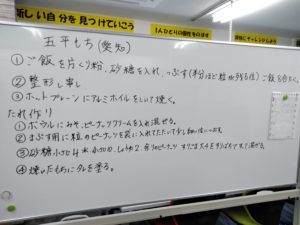 新しい自分を見つけていこう
1人ひとりの個性をのばす
五平もち(愛知)
①ご飯を片くり粉、砂糖を入れ、つぶす(半分ほど粒が残る位)
②整形し蒸し
③ホットプレートにアルミホイルをしいて焼く。
たれ作り
①ボウルにみそ、ピーナッツクリームを入れ混ぜる。
②まぶす用に粒のピーナッツを袋に入れてたたいて少し細い位につぶす。
③砂糖小さじ4 水、小さじ2、しょうゆ2、
④焼いたもちにタレを塗る。